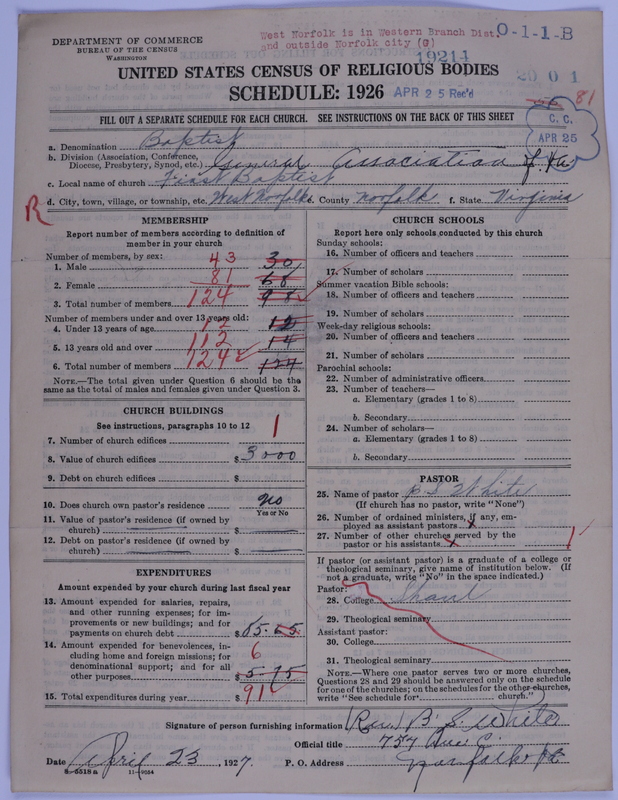 West Norfolk is in Western Branch Dist.
and outside Norfolk city (G)
O-1-1-B
19214
20 01
81
DEPARTMENT OF COMMERCE
BUREAU OF THE CENSUS
WASHINGTON
UNITED STATES CENSUS OF RELIGIOUS BODIES
SCHEDULE: 1926
APR 25 Rec'd
FILL OUT A SEPARATE SCHEDULE FOR EACH CHURCH. SEE INSTRUCTIONS ON THE BACK OF THIS SHEET
C. C.
APR 25
a. Denomination Baptist
b. Division (Association, Conference,
Diocese, Presbytery, Synod, etc.) General Association of Va
c. Local name of church First Baptist
R d. City, town, village, or township, etc. West Norfolk e. County Norfolk f. State Virginia
MEMBERSHIP
Report number of members according to definition of
member in your church
Number of members, by sex:
1. Male 43 30
2. Female 81 68
3. Total number of members 124 98
Number of members under and over 13 years old:
4. Under 13 years of age 12 12
5. 13 years old and over 112 14
6. Total number of members 124 124
NOTE.—The total given under Question 6 should be the
same as the total of males and females given under Question 3.
CHURCH BUILDINGS
See instructions, paragraphs 10 to 12
7. Number of church edifices 1
8. Value of church edifices $3000
9. Debt on church edifices $
10. Does church own pastor's residence no
Yes or No
11. Value of pastor's residence (if owned by
church) $
12. Debt on pastor's residence (if owned by
church) $
EXPENDITURES
Amount expended by your church during last fiscal year
13. Amount expended for salaries, repairs,
and other running expenses; for im-
provements or new buildings; and for
payments on church debt $85.65
14. Amount expended for benevolences, in-
cluding home and foreign missions; for
denominational support; and for all
other purposes $5.75
6
15. Total expenditures during year $91
CHURCH SCHOOLS
Report here only schools conducted by this church
Sunday schools:
16. Number of officers and teachers
17. Number of scholars
Summer vacation Bible schools:
18. Number of officers and teachers
19. Number of scholars
Week-day religious schools:
20. Number of officers and teachers
21. Number of scholars
Parochial schools:
22. Number of administrative officers
23. Number of teachers—
a. Elementary (grades 1 to 8)
b. Secondary
24. Number of scholars—
a. Elementary (grades 1 to 8)
b. Secondary
PASTOR
25. Name of pastor B S White
(If church has no pastor, write "None")
26. Number of ordained ministers, if any, em-
ployed as assistant pastors x
27. Number of other churches served by the
pastor or his assistants x 1
If pastor (or assistant pastor) is a graduate of a college or
theological seminary, give name of institution below. (If
not a graduate, write "No" in the space indicated.)
Pastor:
28. College
29. Theological seminary
Assistant pastor:
30. College
31. Theological seminary
NOTE.—Where one pastor serves two or more churches,
Questions 28 and 29 should be answered only on the schedule
for one of the churches; on the schedules for the other churches,
write "See schedule for church.")
Signature of person furnishing information (Rev) B. S. White
Official title 757 Ave C.
Date April 23, 1927. P. O. Address Norfolk Va
8-5518a 11-9564